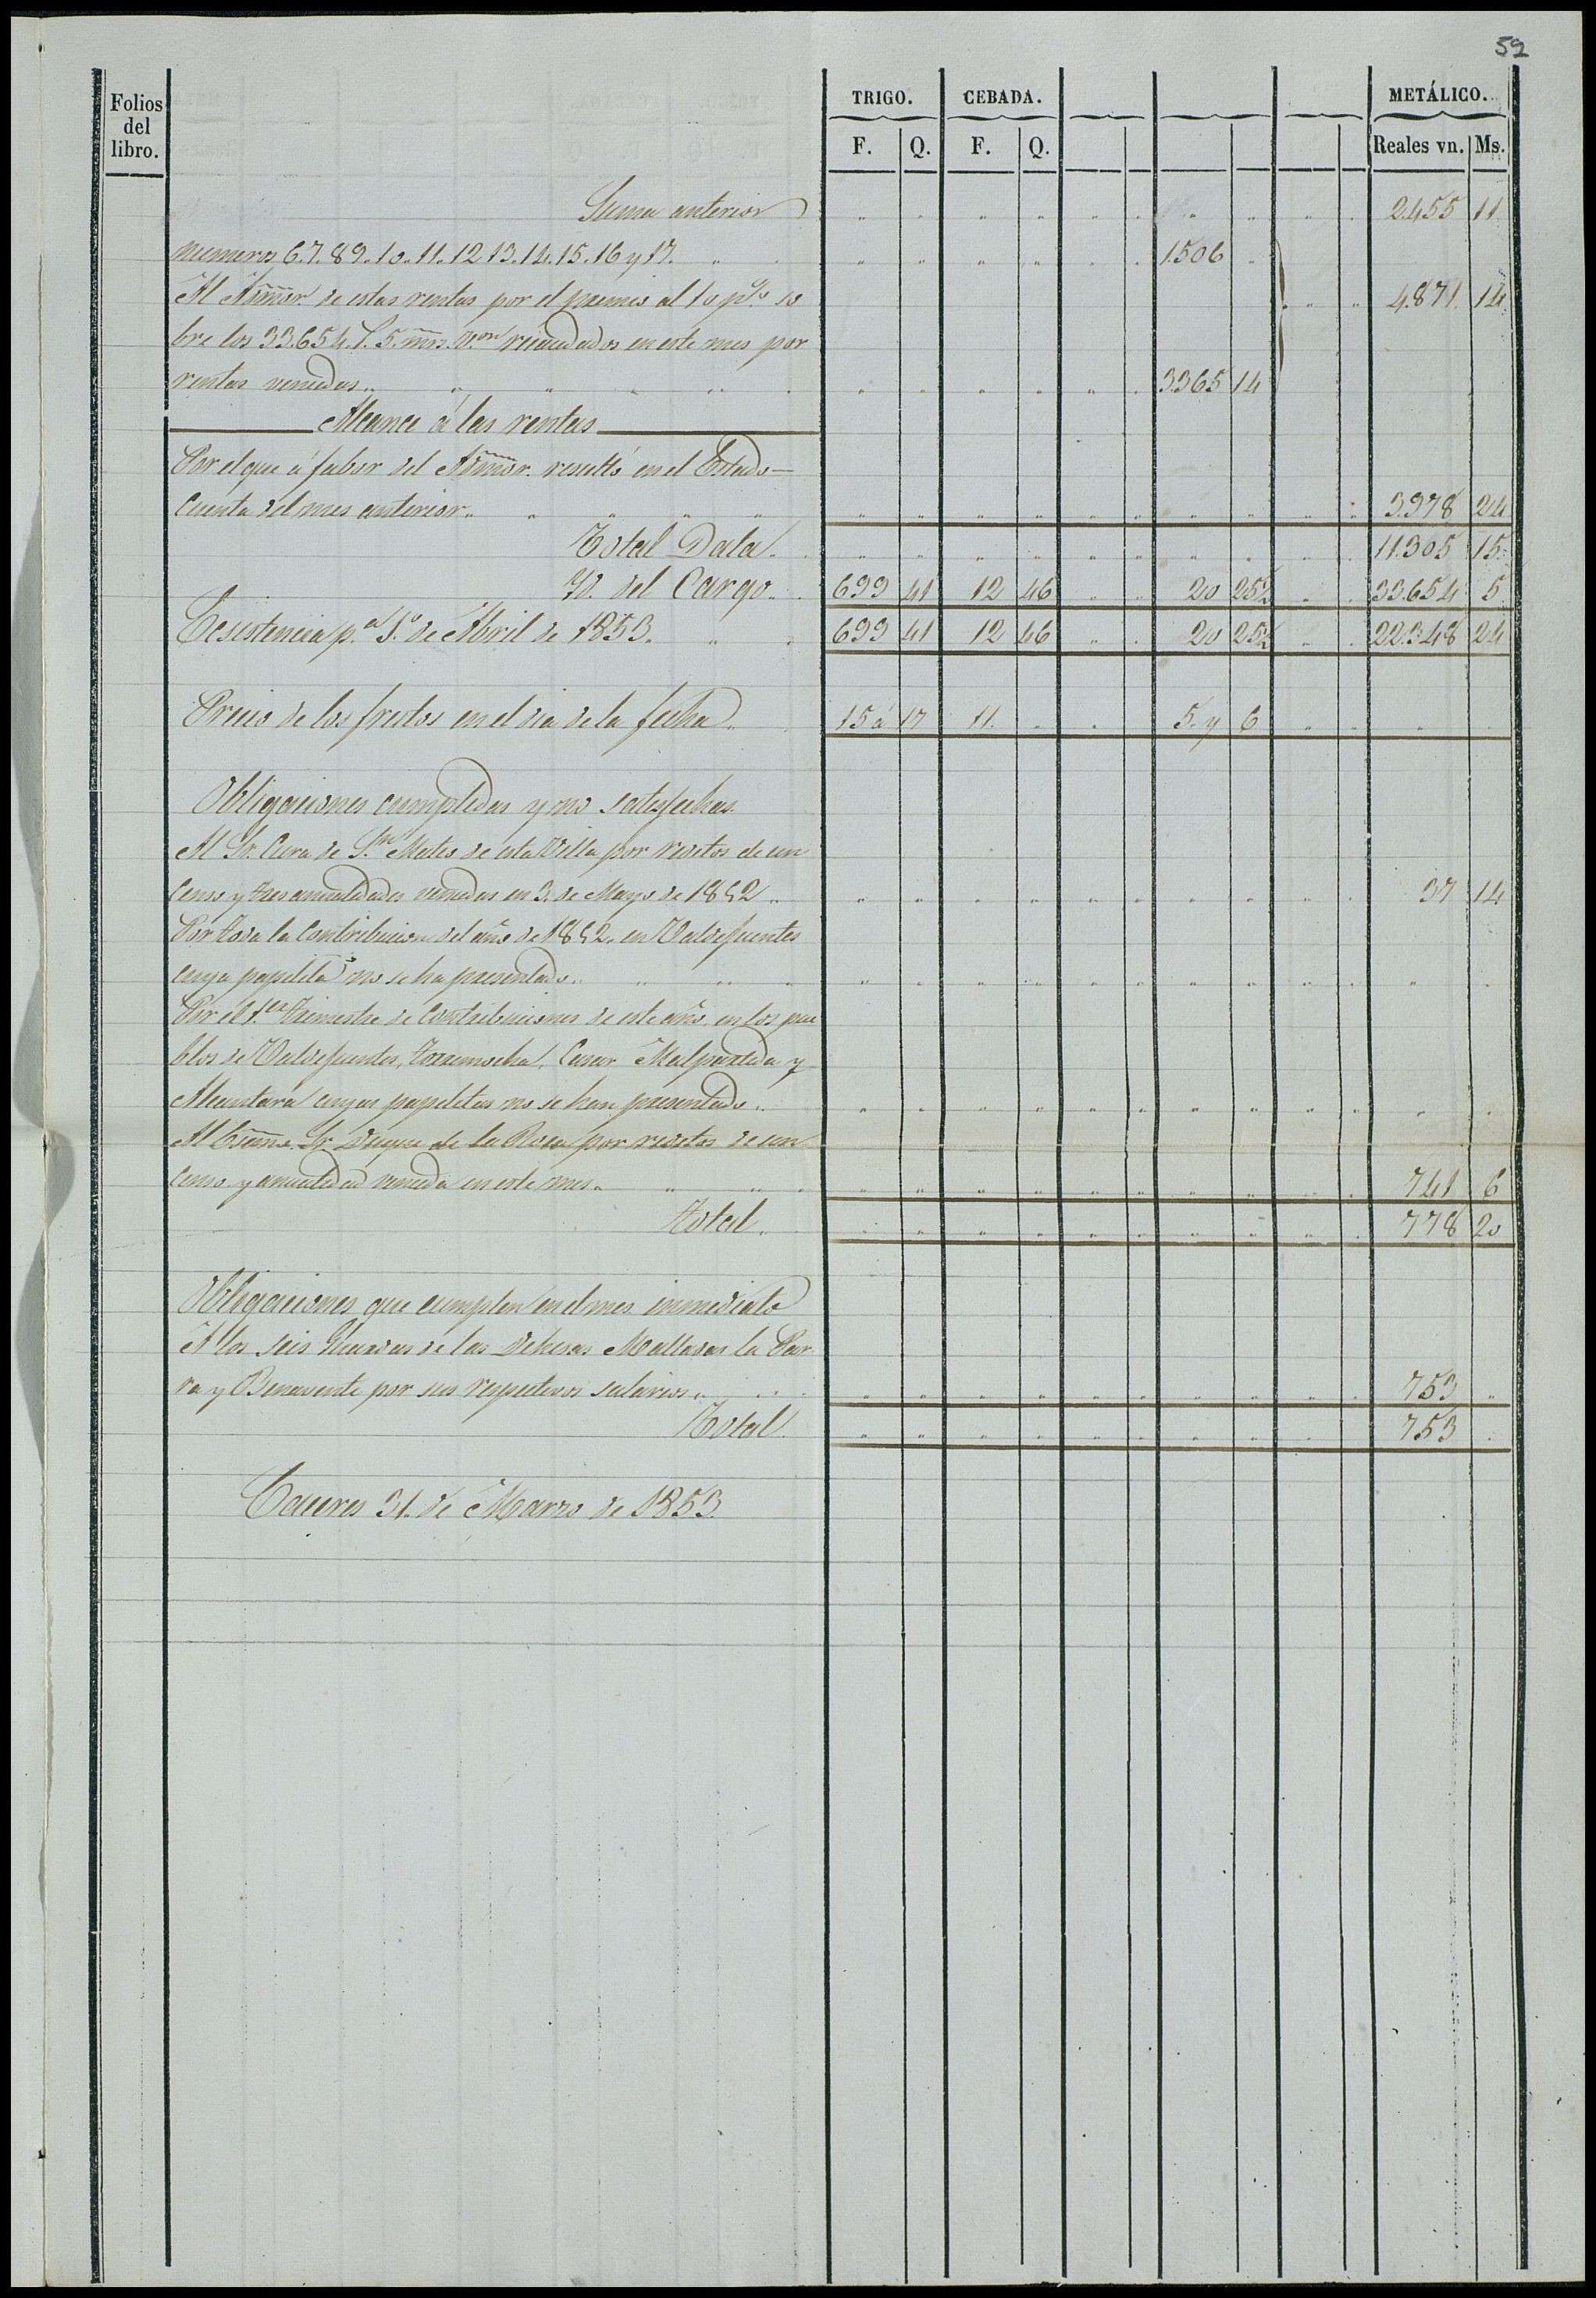 52
Folios del libro.
TRIGO. CEBADA. METÁLICO.
F. Q. F. Q. Reales vn. Ms.
Suma anterior 2455 11
numeros 6.7.8 9.10.11.12 13.14.15.16 y 17. 1506
Al Admor. de estas rentas por el premio al 10 p% so 4.871. 14
bre los 33.654. r. 5. mrs. von recaudados en este mes por
rentas vencidas 3365 14
Alcance á las rentas
Por el que á fabor del Admor. resultó en el Estado-
cuenta del mes anterior 3.978 24
Total Data 11.305 15
Yd. del Cargo 699 41 12 46 20 25½ 33.654 5
Ecsistencia pa 1o de Abril de 1853. 699 41 12 46 20 25½ 22.348 24
Precio de los frutos en el dia de la fecha 15 á 17 11. 5. y 6
Obligaciones cumplidas y no satisfechas
Al Sr. Cura de Sn Mateo de esta Villa por reditos de un
censo y tres anualidades vencidas en 3. de Mayo de 1852 37 14
Por toda la contribucion del año de 1852. en Valdefuentes
cuya papeleta no se ha presentado
Por el 1.er trimestre de contribuciones de este año, en los pue
blos de Valdefuentes, torremocha, Casar Malpartida y
Alcantara cuyas papeletas no se han presentado
Al Escmo. Sr. Duque de la Roca por reditos de un
censo y anualidad vencida en este mes 741 6
total. 778 20
Obligaciones que cumplen en el mes inmediato
A los seis Guardas de las Dehesas Malladas la Par
ra y Benavente por sus respectivos salarios 753
Total 753
Caceres 31. de Marzo de 1853.